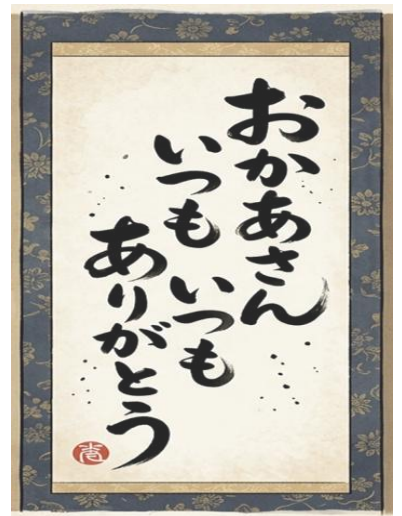 おかあさん
いつも いつも
ありがとう